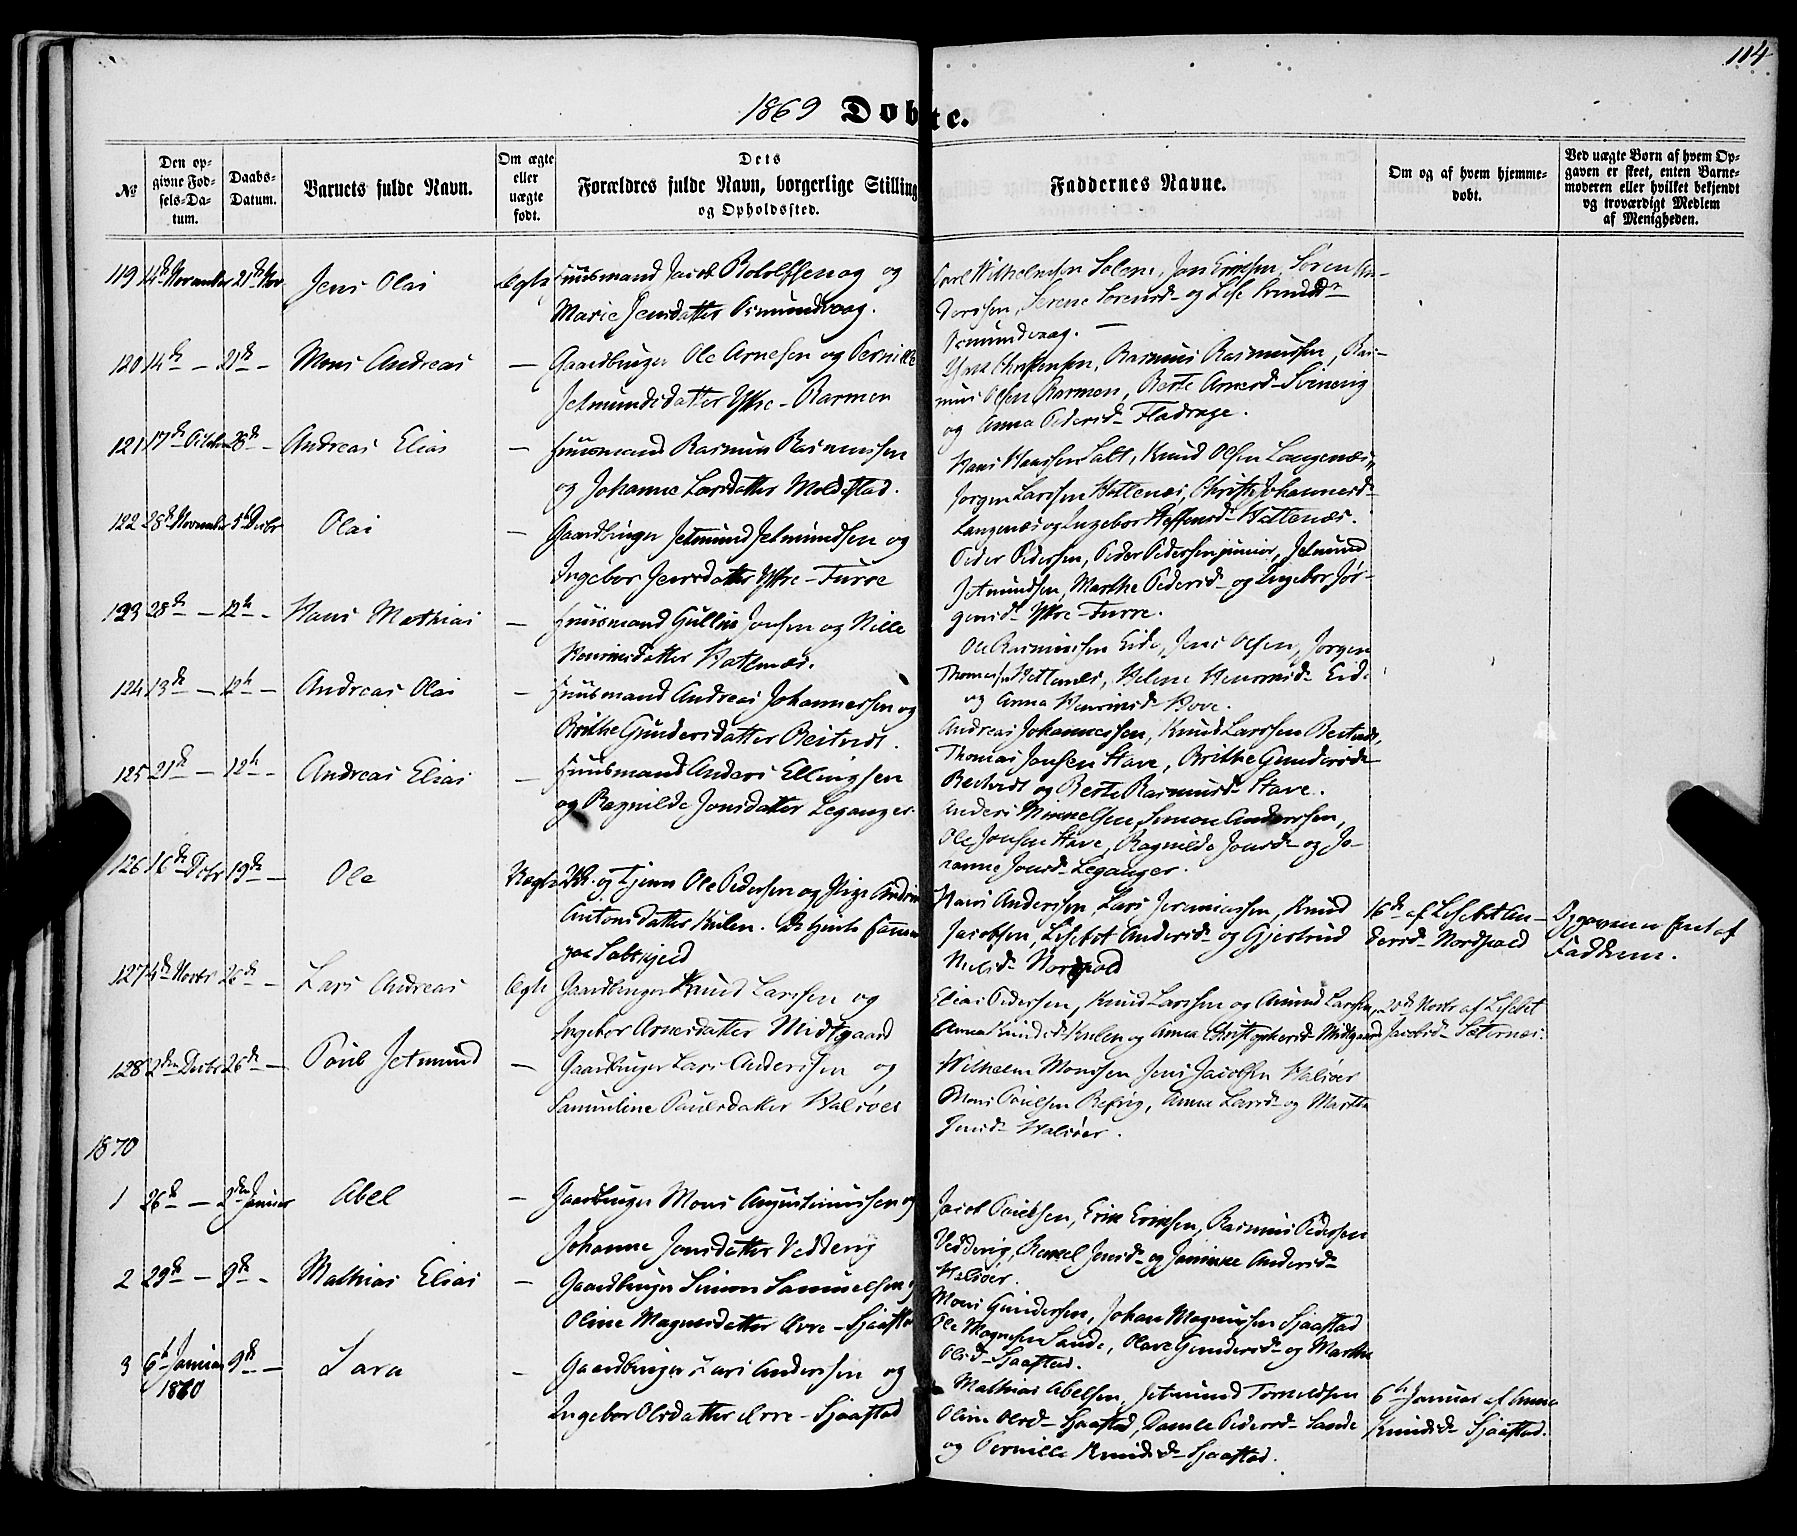 114
1869 Døbte.
№
Den op-
givne Fød-
sels-Da-
tum.
Daabs-
Datum.
Barnets fulde Navn.
Om ægte
eller
uægte
født.
Dets
Forældres fulde Navn, borgerlige Stilling
og Opholdssted.
Faddernes Navne.
Om og af hvem hjemme-
døbt.
Ved uægte Børn af hvem Op-
gaven er skeet, enten Barne-
moderen eller hvilket bekjendt
og troværdigt Medlem
af Menigheden.
119 14de November 21de Nov Jens Olai Ægte Huusmand Jacob og
Marie Jensdatter Osmundvaag.
Carl Wilhelmsen Solem, Jon Eriksen, Søren An-
dersen, Serene Sørensd. og Lise
Osmundvaag. —
120 14de — 21de — Mons Andreas — Gaardbruger Ole Arnesen og Pernille
Jetmundsdatter Ytre-Barmen
Christensen, Rasmus Rasmussen, Ras-
mus Olsen Barmen, Berte Arnesd. Svinevig
og Anna Pedersd. Fladrage.
121 17de October 28de Andreas Elias — Huusmand Rasmus Rasmussen
og Johanne Larsdatter Moldestad.
Hans Hanssen Salt, Knud Olsen Langenæs,
Jørgen Larssen Hatlenæs, Christi Johannesd.
Langenæs og Ingebor Steffensd. Hatlenæs.
122 28de November 5te Decbr Olai — Gaardbruger Jetmund Jetmundsen og
Ingebor Jensdatter Ytre-Furre
Peder Pedersen, Peder Pedersen junior, Jetmund
Jetmundsen, Marthe Pedersd. og Ingebor Jør-
gensd. Ytre-Furre.
123 28de — 12te — Hans Mathias — Huusmand Gullik Jonsen og Nille
Henriksdatter Hatlenæs.
Ole Rasmussen Eide, Jens Olsen, Jørgen
Thomas. Hatlenæs, Helene Henriksd. Eide
og Anna Henriksd. Hove.
124 13de — 12te — Andreas Olai — Huusmand Andreas Johannessen og
Brithe Gundersdatter Reitvedt.
Andreas Johannessen, Knud Larssen Reitvedt,
Thomas Jonsen Stave, Brithe Gundersd.
Reitvedt og Berte Rasmusd. Stave.
125 21de — 12te — Andreas Elias — Huusmand Anders Ellingsen
og Ragnilde Jonsdatter Leganger.
Anders Mikkelsen, Simon Anderssen,
Ole Jonsen Stave, Ragnilde Jonsd. og Jo-
hanne Jonsd. Leganger.
126 16de Decbr 19de — Ole Uægte og Tjener Ole Pedersen og Pige Andrine
Antonsdatter Kulen. De tjente sammen
paa Saltkjeld
Hans Anderssen, Lars Jeremiassen, Knud
Jacobsen, Lisebet Andersd. og Gjertrud
Nilsd. Nordpold
16de af Lisebet An-
dersd. Nordpold
Opgaven skeet af
Faderen.
127 4de Novbr 26de — Lars Andreas Ægte Gaardbruger Knud Larssen og
Ingebor Arnesdatter Midtgaard
Elias Pedersen, Knud Larssen og Amund Larssen,
Anna Knudsd. Kulen og Anna Christophersd. Midtgaard
20de Novbr af Lisebet
Jacobsd. Sæternæs.
128 2den Decbr 26de — Poul Jetmund — Gaardbruger Lars Anderssen og
Sammeline Paulsdatter Halsøer
Wilhelm Monssen, Jens Jacobsen Halsøer
Mons Poulsen Refvig, Anna Larsd. og Marthe
Jensd. Halsøer.
1870
1 26de — 2den Januar Abel — Gaardbruger Mons Augustinussen og
Johanne Jonsdatter Vedvig
Jacob Poulsen, Erik Eriksen, Rasmus Pedersen
Vedvig, Rakel Jensd. og Jannikke Andersd.
Halsøer.
2 29de — 9de — Mathias Elias — Gaardbruger Simon Sammelsen og
Oline Magnesdatter Øvre-Sjaastad
Mons Gunderssen, Johan Magnusen Sjaastad
Ole Magnesen Sande, Olave Gundersd. og Marthe
Olsd. Sjaastad.
3 6te Januar
1870 9de — Lara — Gaardbruger Lars Anderssen og
Ingebor Olsdatter Øvre-Sjaastad
Mathias Abelsen, Jetmund Tormodsen
Oline Olsd. Sjaastad, Damle Pedersd. Sande
og Pernille Knudsd. Sjaastad.
6te Januar af Anna
Knudsd. Sjaastad.